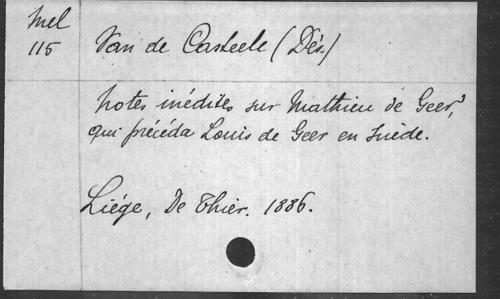 Mel
115
Van de Casteele (Dés.)
Notes inédites sur Mathieu de Geer,
qui précéda Louis de Geer en Suède.
Liége, De Thier. 1886.